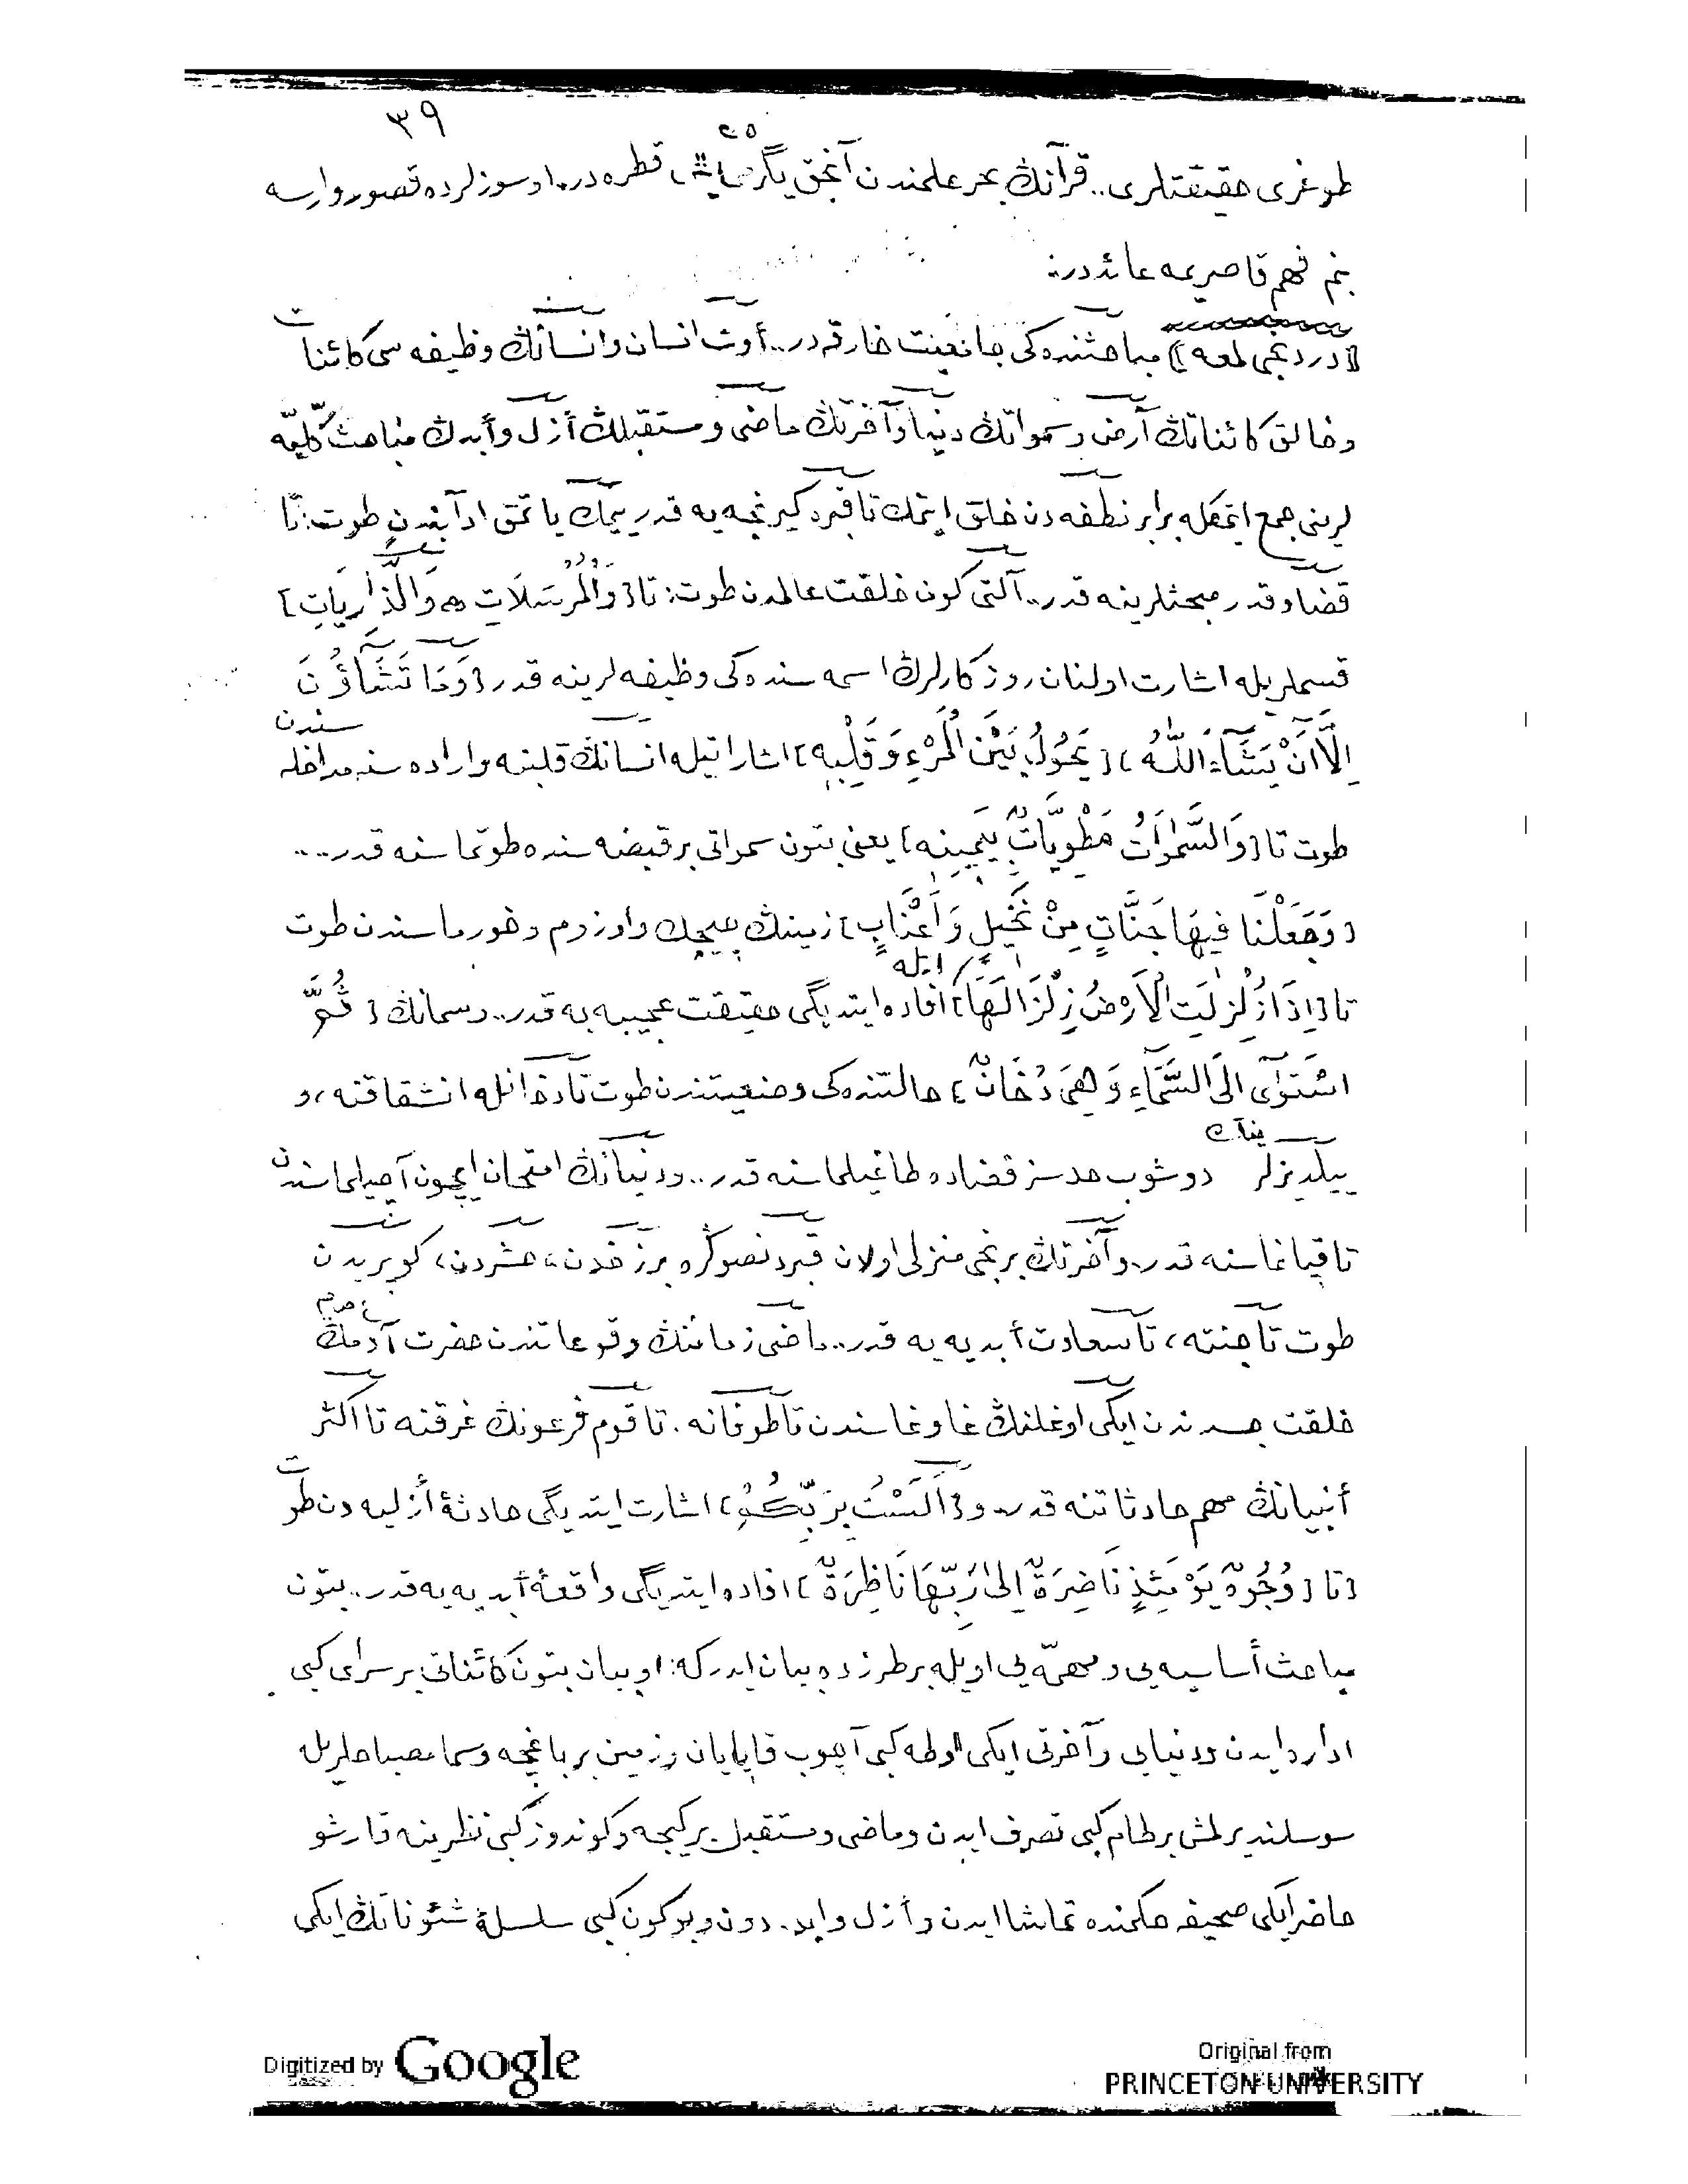 ٣٩
طوغرى حقيقتلرى.. قرآنڭ بحر علمندن آنجق يگرمى بش قطره‌در. او سوزلرده قصور وارسه
٢٥
بنم فهم قاصريمه عائددر.
﴿دردنجى لمعه﴾ مباحثنده‌كى جامعيت خارقه‌در.. أوت انسان وانسانڭ وظيفه سى كائنات
وخالق كائناتڭ أرض وسمواتڭ دنيا وآخرتڭ ماضى ومستقبلڭ أزل وأبدڭ مباحث كلّيه
لرينى جمع ايتمكله برابر نطفه دن خلق ايتمك تا قبره كيرنجه يه قدر ييمك ياتمق آدابندن طوت: تا
قضا وقدر مبحثلرينه قدر.. آلتى كون خلقت عالمدن طوت: تا ﴿وَالْمُرْسَلَاتِ ❊ وَالذَّارِيَاتِ﴾
قسملريله اشارت اولنان روزكارلرڭ اسمه سنده‌كى وظيفه لرينه قدر ﴿وَمَا تَشَاؤُنَ
اِلَّا اَنْ يَشَاءَ اللّٰهُ﴾ ﴿يَحُولُ بَيْنَ الْمَرْءِ وَقَلْبِهِ﴾ اشاراتيله انسانڭ قلبنه واراده سنه مداخله
سندن
طوت تا ﴿وَالسَّمٰوَاتُ مَطْوِيَّاتٌ بِيَمِينِهِ﴾ يعنى بتون سمواتى بر قبضه سنده طوتماسنه قدر...
﴿وَجَعَلْنَا فِيهَا جَنَّاتٍ مِنْ نَخِيلٍ وَاَعْنَابٍ﴾ زمينڭ چيچك واوزوم وخورماسندن طوت
تا ﴿اِذَا زُلْزِلَتِ الْاَرْضُ زِلْزَالَهَا﴾ ايله افاده ايتديگى حقيقت عجيبه يه قدر.. وسمانڭ ﴿ثُمَّ
اسْتَوٰى اِلَى السَّمَاءِ وَهِىَ دُخَانٌ﴾ حالتنده‌كى وضعيتندن طوت تا دخانله انشقاقنه، و
ييلديزلرينڭ دوشوب حدسز فضاده طاغيلماسنه قدر.. ودنيانڭ امتحان ايچون آچيلماسندن
تا قپانماسنه قدر.. وآخرتڭ برنجى منزلى اولان قبردن صوڭره برزخدن، حشردن، كوپريدن
طوت تا جنته، تا سعادت أبديه يه قدر.. ماضى زماننڭ وقوعاتندن حضرت آدمڭ
ع م
خلقت جسدندن ايكى اوغلنڭ غاوغاسندن تا طوفانه. تا قوم فرعونڭ غرقنه تا اكثر
أنبيانڭ مهم حادثاتنه قدر.. و ﴿اَلَسْتُ بِرَبِّكُمْ﴾ اشارت ايتديگى حادثهٔ أزليه دن طوت
تا ﴿وُجُوهٌ يَوْمَئِذٍ نَاضِرَةٌ اِلٰى رَبِّهَا نَاظِرَةٌ﴾ افاده ايتديگى واقعهٔ أبديه يه قدر.. بتون
مباحث أساسيه يى ومهمّه يى اويله بر طرزده بيان ايدر كه: او بيان بتون كائناتى بر سراى كبى
اداره ايدن ودنيايى وآخرتى ايكى اوطه كبى آچوب قاپايان وزمين بر باغچه وسما مصباحلريله
سوسلنديرلمش بر طام كبى تصرف ايدن وماضى ومستقبل بر كيجه وكوندوز كبى نظرينه قارشو
حاضر ايكى صحيفه حكمنده تماشا ايدن وأزل وابد. دون وبوكون كبى سلسلهٔ شئوناتڭ ايكى
Digitized by Google
Original from
PRINCETON UNIVERSITY